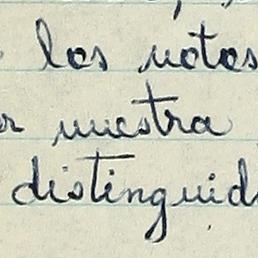 los notas
nuestra
distinguid